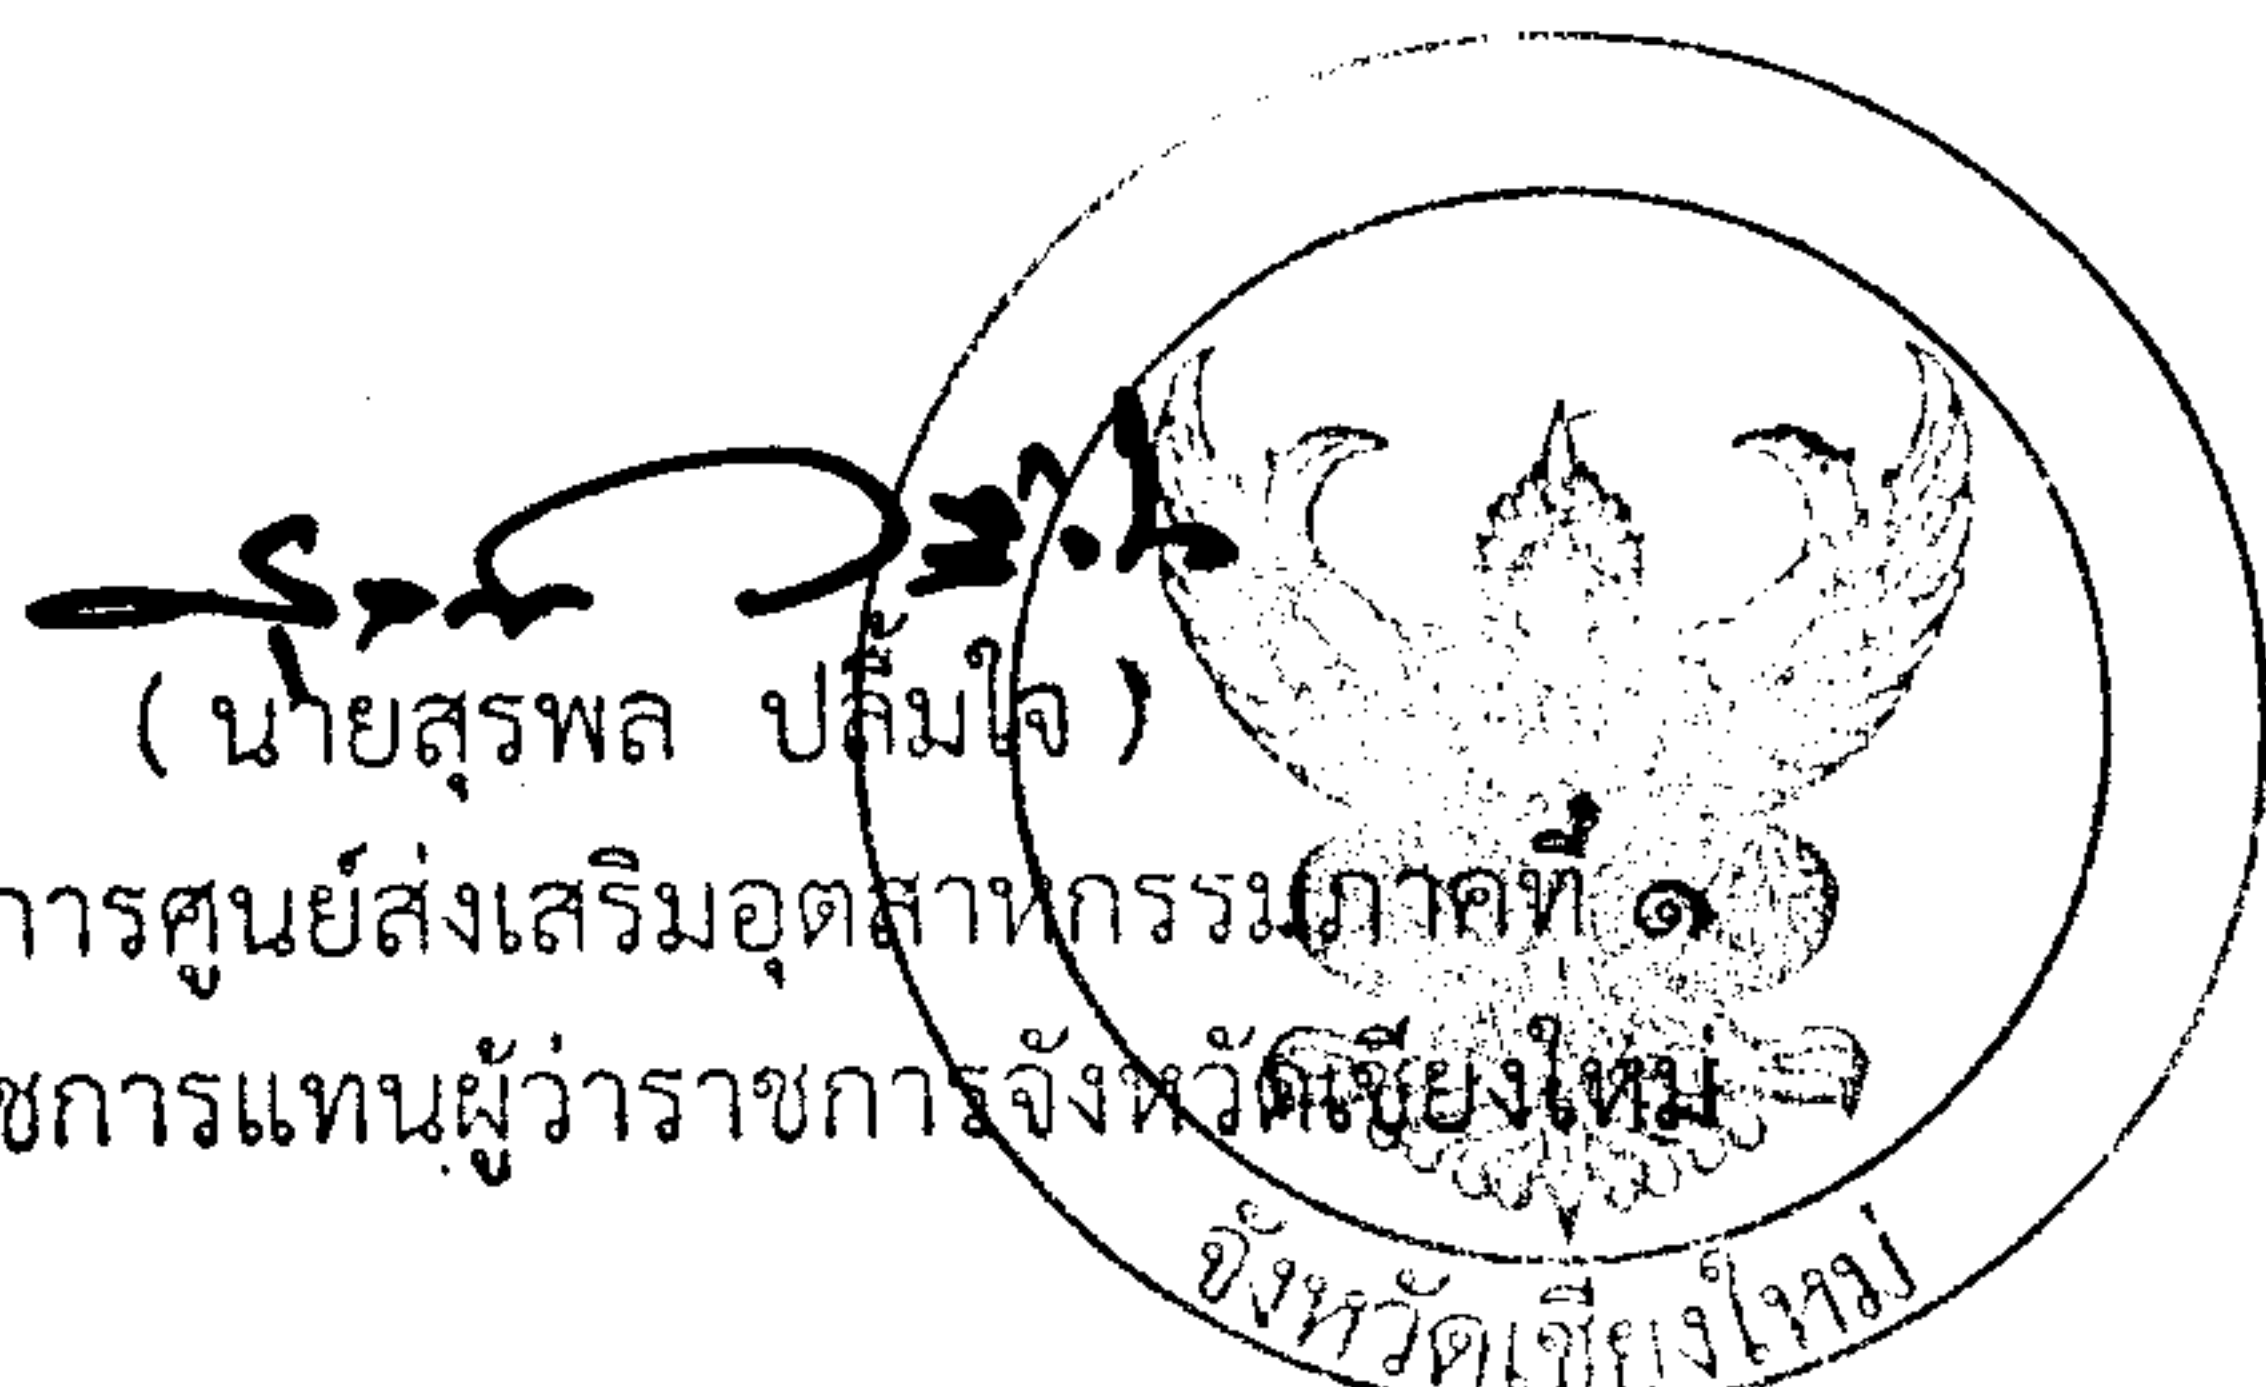 (นายสุรพล ปลื้มใจ)
การศูนย์ส่งเสริมอุตสาหกรรมภาคที่ ๑
ชการแทนผู้ว่าราชการจังหวัดเชียงใหม่
จังหวัดเชียงใหม่